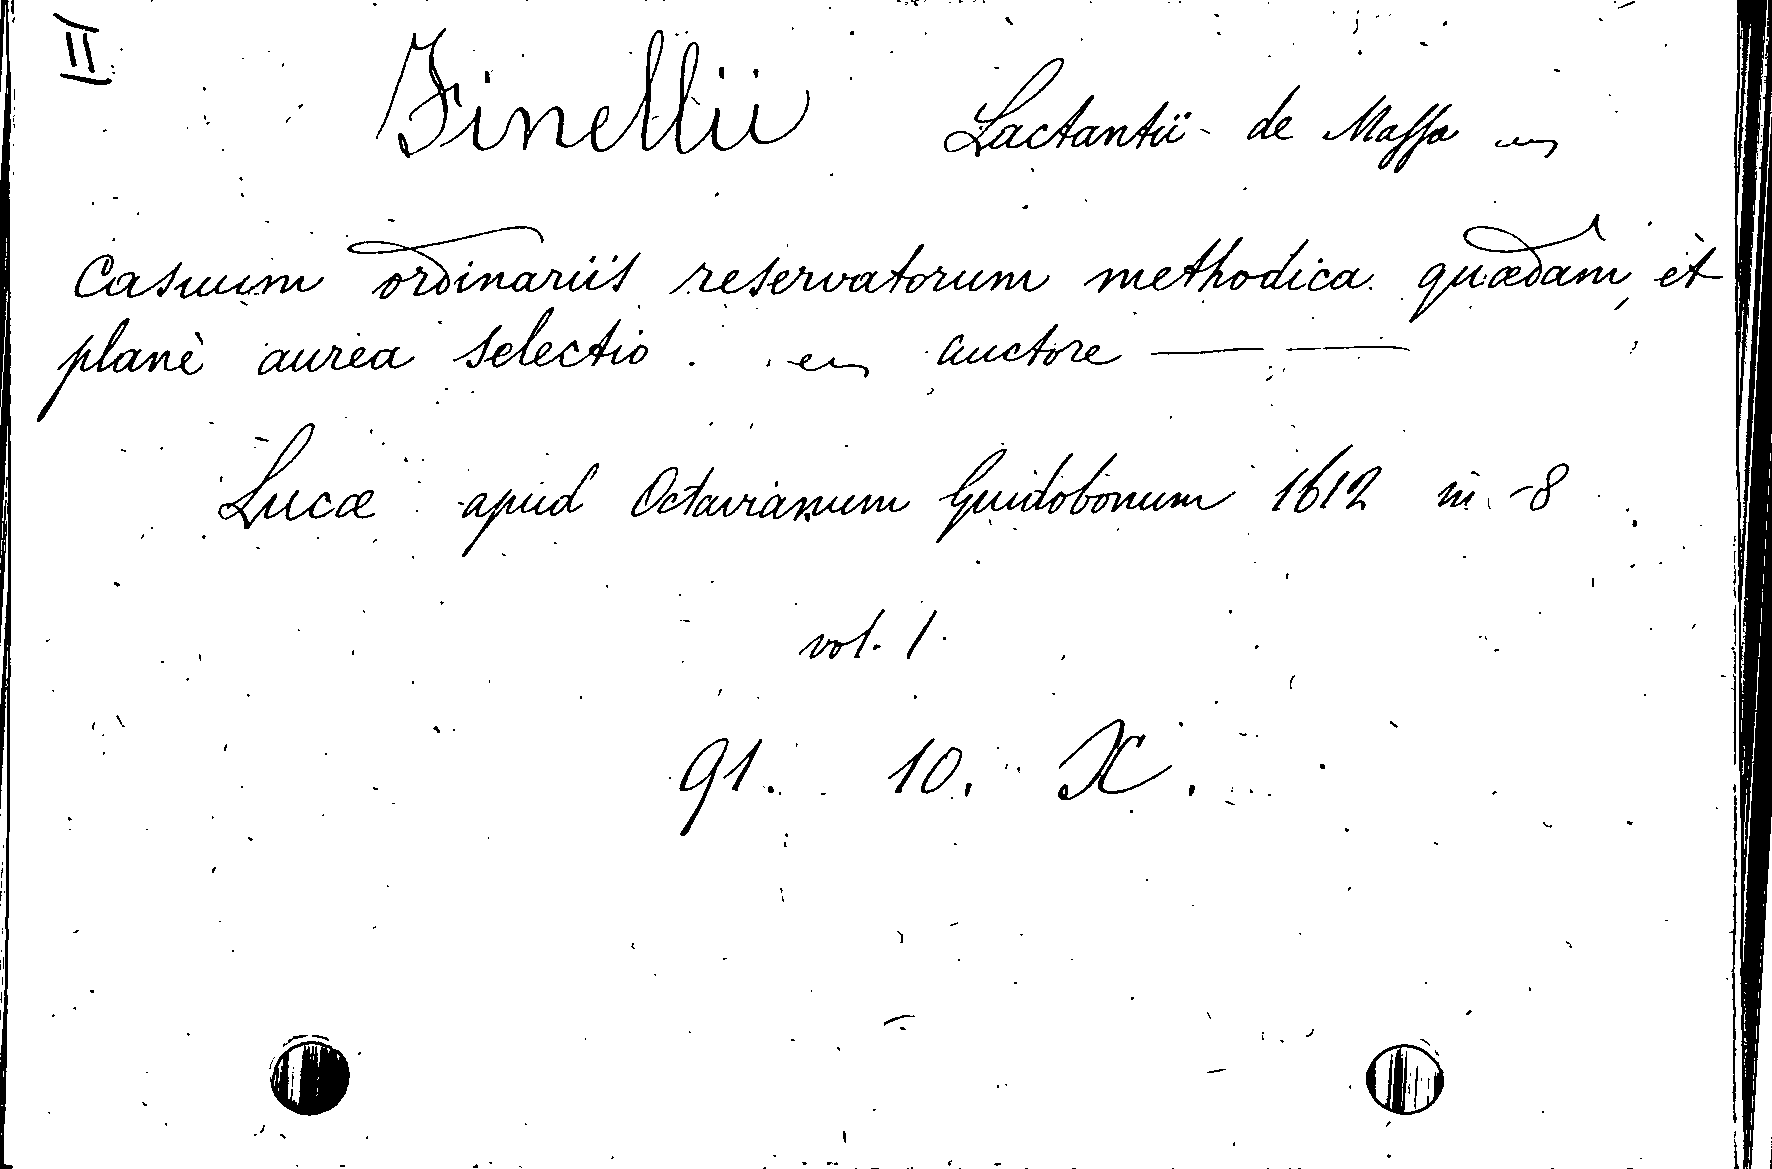 II
Finellii Lactantii - de Massa
Casuum ordinariis reservatorum methodica quædam, èt
planè aurea selectio. auctore — —
Lucæ apud Octavianum Guidobonum 1612 in-8
vol. 1
91. 10. X.